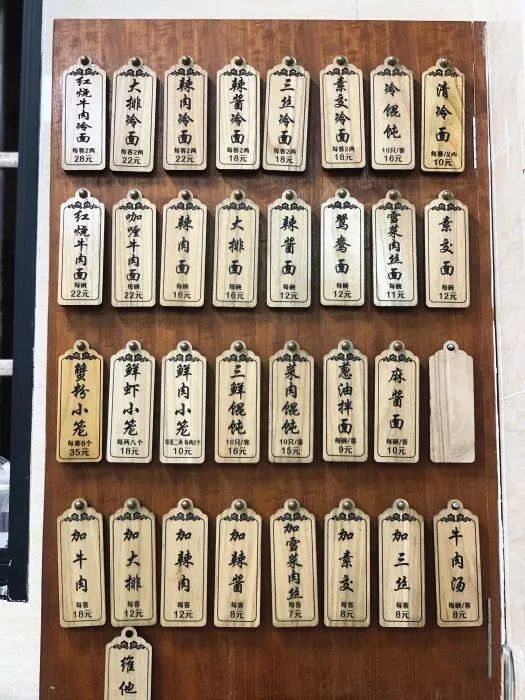 红烧牛肉冷面
每客2两
28元
大排冷面
每客2两
22元
辣肉冷面
每客2两
22元
辣酱冷面
每客2两
18元
三丝冷面
每客2两
18元
素交冷面
每客2两
18元
冷馄饨
10只/客
16元
清冷面
每客/2两
10元
红烧牛肉面
每碗
22元
咖喱牛肉面
每碗
22元
辣肉面
每碗
16元
大排面
每碗
16元
辣酱面
每碗
12元
鸳鸯面
每碗
12元
雪菜肉丝面
每碗
11元
素交面
每碗
12元
蟹粉小笼
每客8个
35元
鲜虾小笼
每两八个
18元
鲜肉小笼
10元
三鲜馄饨
10只/客
16元
菜肉馄饨
10只/客
15元
葱油拌面
每碗/客
9元
麻酱面
每碗/客
10元
加牛肉
每客
18元
加大排
每客
12元
加辣肉
每客
12元
加辣酱
每客
8元
加雪菜肉丝
每客
7元
加素交
每客
8元
加三丝
每客
8元
牛肉汤
每碗/客
8元
维他